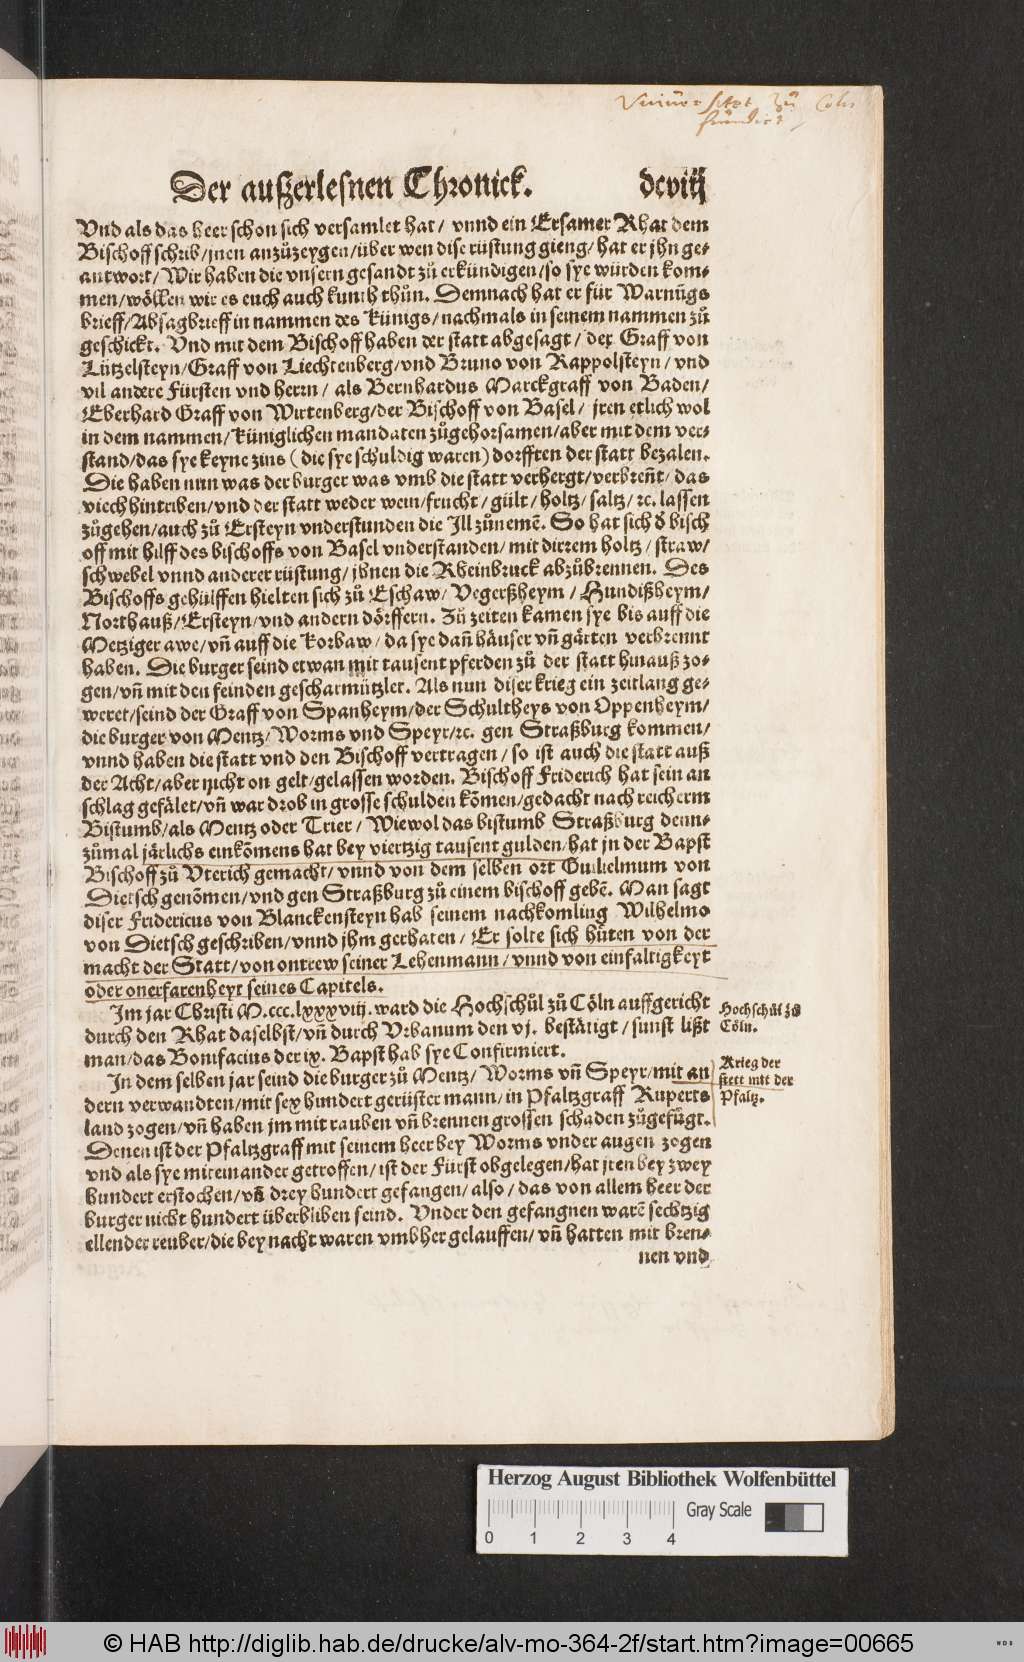 Der außerlesnen Chronick. dcviij
Vnd als das heer schon sich versamlet hat / vnnd ein Ersamer Rhat dem
Bischoff schrib / jnen anzůzeygen / über wen dise rüstung gieng / hat er jhn ge⸗
antwort / Wir haben die vnsern gesandt zů erkündigen / so sye würden kom⸗
men / wöllen wir es euch auch kunth thůn. Demnach hat er für Warnũgs
brieff / Absagbrieff in nammen des Künigs / nachmals in seinem nammen zů
geschickt. Vnd mit dem Bischoff haben der statt abgesagt / der Graff von
Lützelsteyn / Graff von Liechtenberg / vnd Bruno von Rappolsteyn / vnd
vil andere Fürsten vnd herrn / als Bernhardus Marckgraff von Baden /
Eberhard Graff von Wirtenberg / der Bischoff von Basel / jren etlich wol
in dem nammen / Küniglichen mandaten zůgehorsamen / aber mit dem ver⸗
stand / das sye keyne zins ( die sye schuldig waren ) dorfften der statt bezalen.
Die haben nun was der burger was vmb die statt verhergt / verbreñt / das
viech hintriben / vnd der statt weder wein / frucht / gült / holtz / saltz / ꝛc. lassen
zůgehen / auch zů Ersteyn vnderstunden die Ill zůnemẽ. So hat sich d̓ bisch
off mit hilff des bischoffs von Basel vnderstanden / mit dirrem holtz / straw /
schwebel vnnd anderer rüstung / jhnen die Rheinbruck abzůbrennen. Des
Bischoffs gehülffen hielten sich zů Eschaw / Vegerßheym / Hundißheym /
Northauß / Ersteyn / vnd andern dörffern. Zů zeiten kamen sye bis auff die
Metziger awe / vñ auff die Korbaw / da sye dañ häuser vñ gärten verbrennt
haben. Die burger seind etwan mit tausent pferden zů der statt hinauß zo⸗
gen / vñ mit den feinden gescharmützlet. Als nun diser krieg ein zeitlang ge⸗
weret / seind der Graff von Spanheym / der Schultheys von Oppenheym /
die burger von Mentz / Worms vnd Speyr / ꝛc. gen Straßburg kommen /
vnnd haben die statt vnd den Bischoff vertragen / so ist auch die statt auß
der Acht / aber nicht on gelt / gelassen worden. Bischoff Friderich hat sein an
schlag gefälet / vñ war drob in grosse schulden kõmen / gedacht nach reicherm
Bistumb / als Mentz oder Trier / Wiewol das bistumb Straßburg denn⸗
zůmal järlichs einkõmens hat bey viertzig tausent gulden / hat jn der Bapst
Bischoff zů Vterich gemacht / vnnd von dem selben ort Guilielmum von
Dietsch genõmen / vnd gen Straßburg zů einem bischoff gebẽ. Man sagt
diser Fridericus von Blanckensteyn hab seinem nachkomling Wilhelmo
von Dietsch geschriben / vnnd jhm gerhaten / Er solte sich hüten von der
macht der Statt / von ontrew seiner Lehenmann / vnnd von einfaltigkeyt
oder onerfarenheyt seines Capitels.
Im jar Christi M.ccc.lxxxviij. ward die Hochschůl zů Cöln auffgericht
durch den Rhat daselbst / vñ durch Vrbanum den vj. bestätigt / sunst lißt
man / das Bonifacius der ix. Bapst hab sye Confirmiert.
Hochschůl zů
Cöln.
In dem selben jar seind die burger zů Mentz / Worms vñ Speyr / mit an
dern verwandten / mit sex hundert gerüster mann / in Pfaltzgraff Ruperts
land zogen / vñ haben jm mit rauben vñ brennen grossen schaden zůgefůgt.
Denen ist der Pfaltzgraff mit seinem heer bey Worms vnder augen zogen
vnd als sye miteinander getroffen / ist der Fürst obgelegen / hat jren bey zwey
hundert erstochen / vñ drey hundert gefangen / also / das von allem heer der
burger nicht hundert überbliben seind. Vnder den gefangnen warẽ sechtzig
ellender reuber / die bey nacht waren vmbher gelauffen / vñ hatten mit bren⸗
nen vnd
Krieg der
stett mit der
Pfaltz.
Herzog August Bibliothek Wolfenbüttel
0 1 2 3 4 Gray Scale
© HAB http://diglib.hab.de/drucke/alv-mo-364-2f/start.htm?image=00665